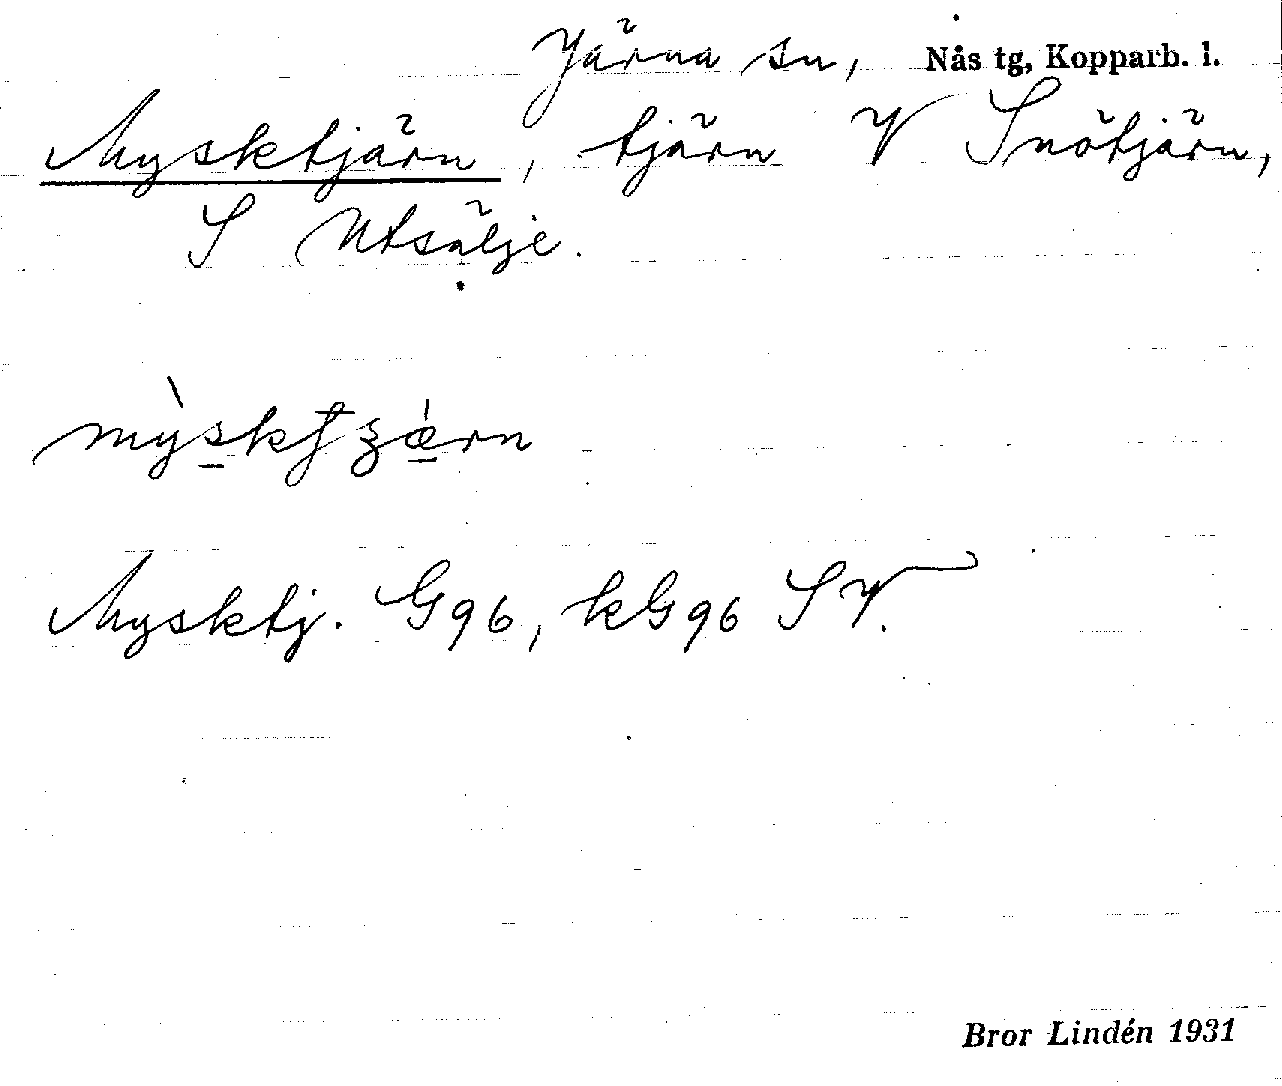 Järna sn, Nås tg, Kopparb. l.
Mysktjärn, tjärn V Snötjärn,
S Utsälje.
mỳskʈʒǽrn
Mysktj. G96, kG96 SV.
Bror Lindén 1931